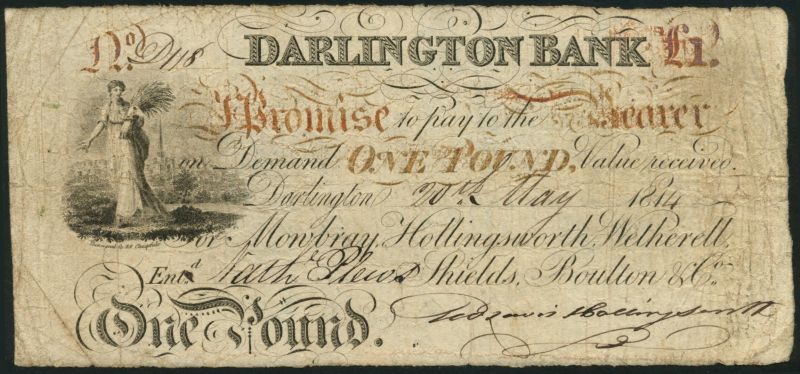 No. D118 DARLINGTON BANK £1.
I Promise to pay to the Bearer
on Demand ONE POUND, Value received.
Darlington 20th May 1814
For Mowbray, Hollingsworth, Wetherell,
Entd. Nathl. Plews Shields, Boulton & Co.
One Pound. Hollingsworth